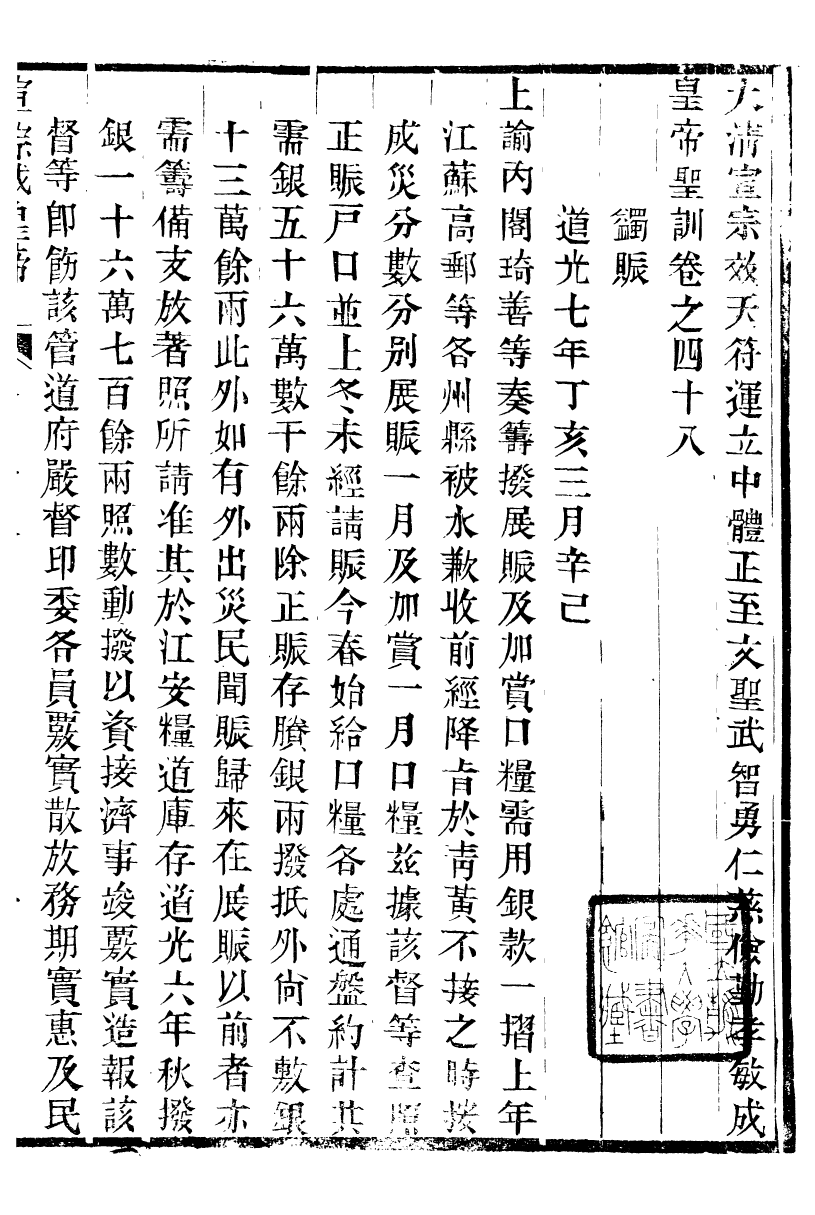 大清宣宗效天符運立中體正至文聖武智勇仁慈儉勤孝敏成
皇帝聖訓卷之四十八
蠲賑
道光七年丁亥三月辛己
上諭內閣琦善等奏籌撥展賑及加賞口糧需用銀款一摺上年
江蘇高郵等各州縣被水歉收前經降旨於靑黃不接之時按
成災分數分别展賑一月及加賞一月口糧茲據該督等查照
正賑戸口並上冬未經請賑今春始給口糧各處通盤約計共
需銀五十六萬數千餘兩除正賑存賸銀兩撥抵外尙不敷銀
十三萬餘兩此外如有外出災民聞賑歸來在展賑以前者亦
需籌備支放著照所請准其於江安糧道庫存道光六年秋撥
銀一十六萬七百餘兩照數動撥以資接濟事竣覈實造報該
督等卽飭該管道府嚴督印委各員覈實散放務期實惠及民
宣宗成皇帝 一